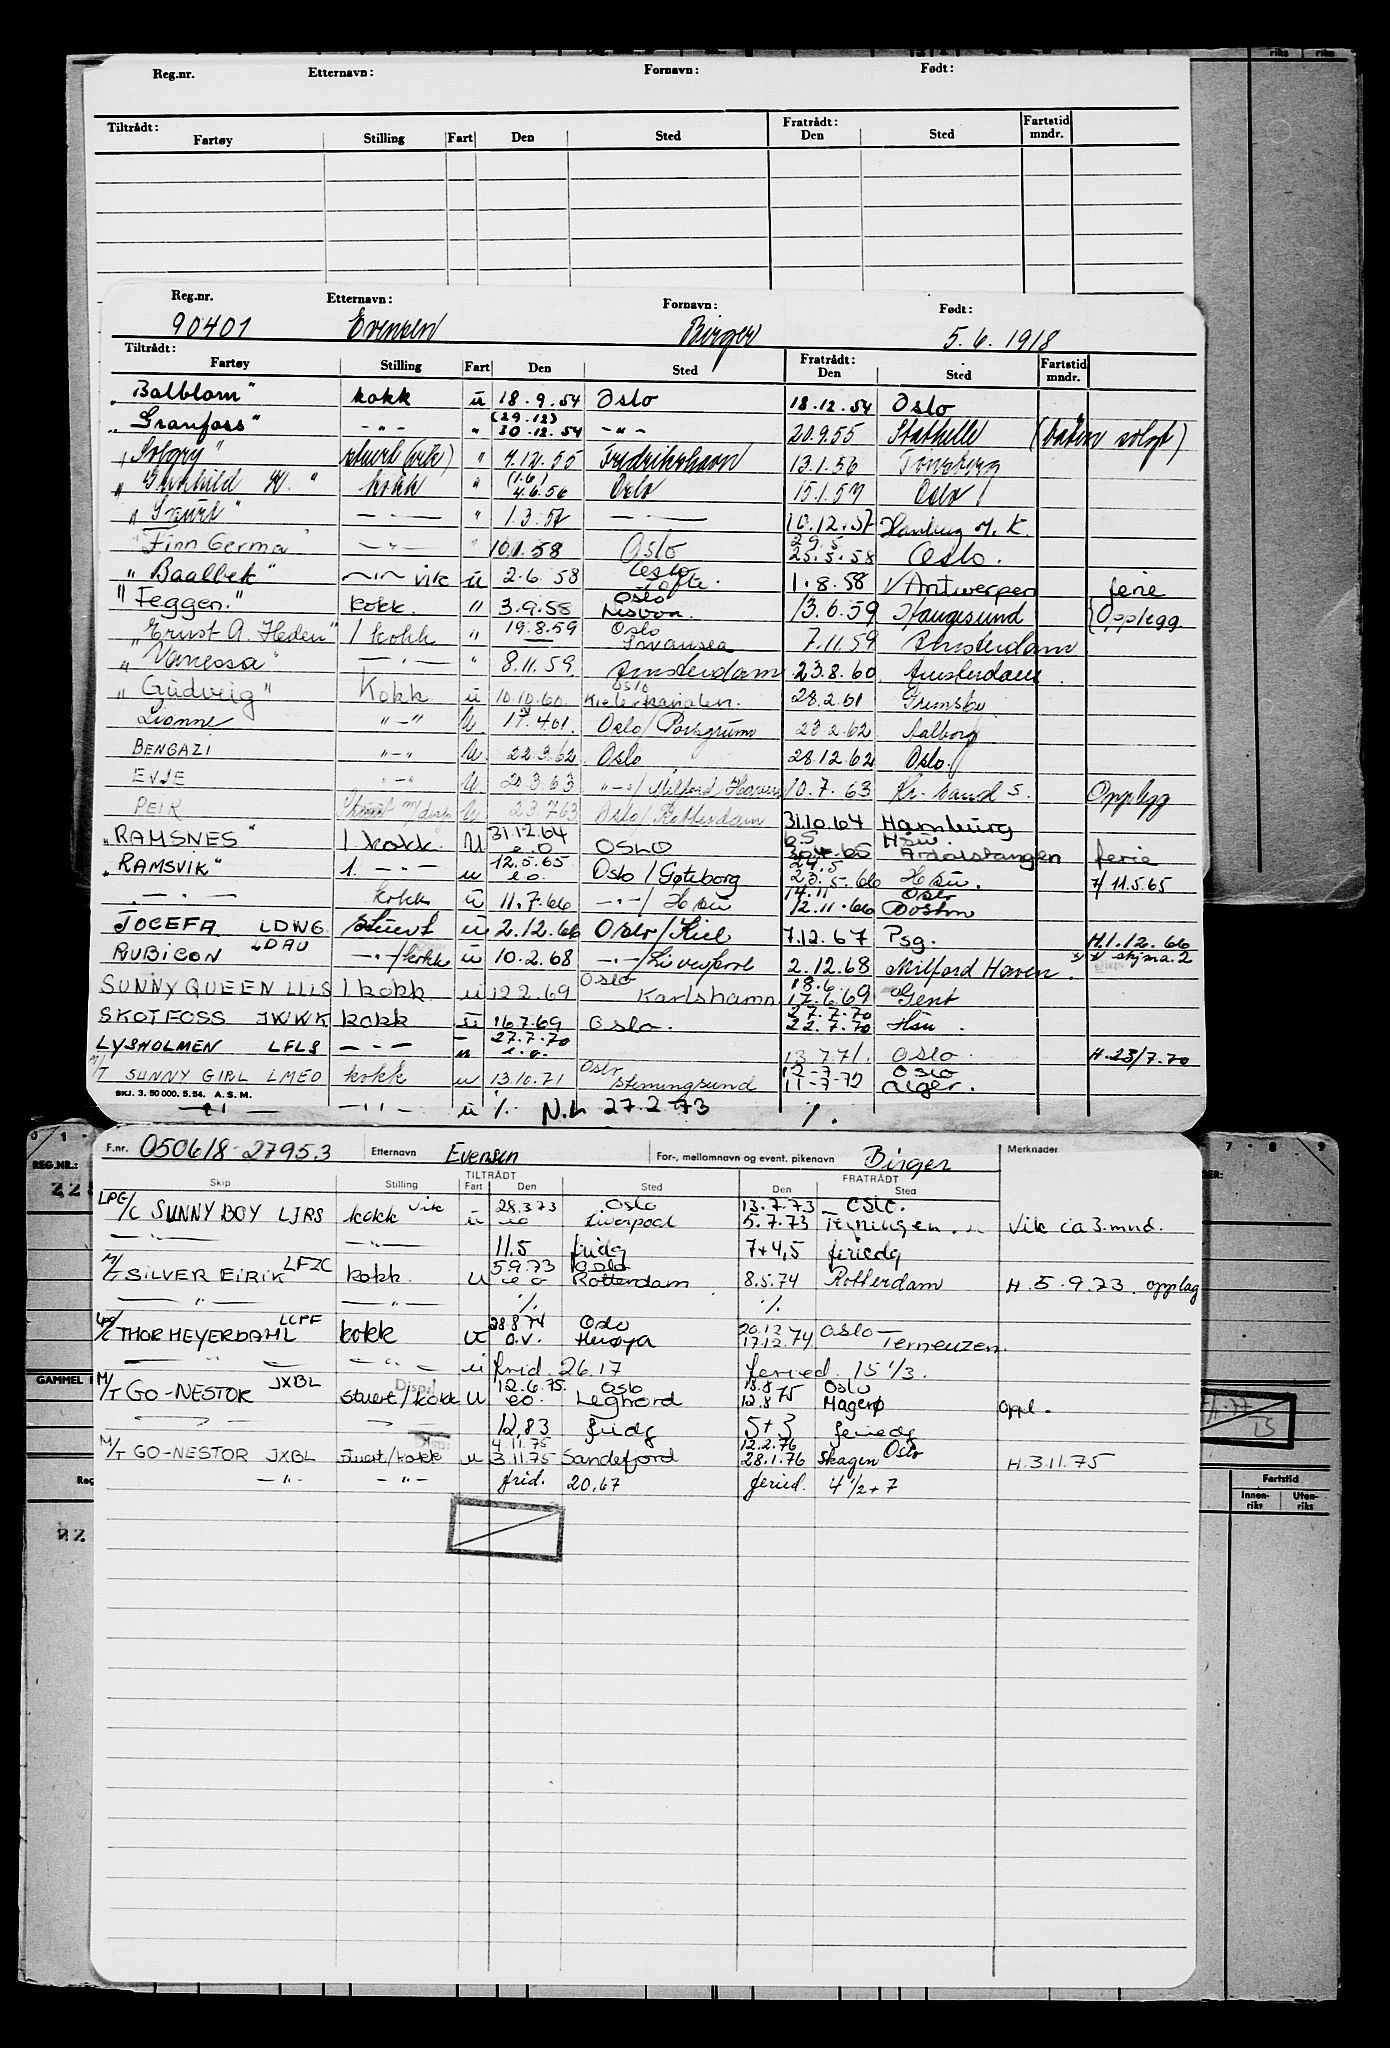 Reg.nr. Etternavn: Fornavn: Født:
Tiltrådt: Fratrådt: Fartstid
Fartøy Stilling Fart Den Sted Den Sted mndr.
Reg.nr. Etternavn: Fornavn: Født:
90401 Evensen Birger 5.6.1918
Tiltrådt: Fratrådt: Fartstid
Fartøy Stilling Fart Den Sted Den Sted mndr.
"Balblom" kokk u 18.9.54 Oslo 18.12.54 Oslo
(29.12)
"Granfoss" -"- " 30.12.54 -"- 20.9.55 Stathelle (båten solgt)
"Solgry" stuert (kokk) " 7.12.55 Fredrikshavn 13.1.56 Tønsberg
(1.6)
"Gunhild " kokk " 4.6.56 Oslo 15.1.57 Oslo
" " -"- " 1.3.57 -"- 10.12.57 Hamburg
29.5
"Finn Germa" -"- " 10.1.58 Oslo 25.5.58 Oslo.
Oslo
"Baalbek" -"- vik u 2.6.58 Tofte. 1.8.58 Antwerpen ferie
Oslo
"Feggen." kokk. " 3.9.58 Lisboa 13.6.59 Haugesund Opplegg.
19.8.59 Oslo
"Ernst A. Heden" 1 kokk " Swansea 7.11.59 Amsterdam
"Vanessa" -"- " 8.11.59. Amsterdam 23.8.60 Amsterdam
Oslo
"Gudveig" Kokk u 10.10.60. Kielerkanalen. 28.2.61 Grimsby
Lionne "-" U 17.4.61 Oslo/Porsgrunn 28.2.62 Aalborg
BENGAZI "-" U 22.3.62 Oslo 28.12.62 Oslo
EVJE "-" U 20.3.63 "-"/Milford Haven 10.7.63 Kr.sand S. Opplegg
PEIK Stuert m/disp U 23.7.63 Oslo/Rotterdam 31.10.64 Hamburg
31.12.64 6.5 Hsu
"RAMSNES" 1 kokk. U e.o OSLO 30.4.65 Årdalstangen ferie
12.5.65 24.5
"RAMSVIK" 1. -"- u e.o. Oslo/Gøteborg 23.5.66 Hsu. 7/11.5.65
14.11 Oslo
-"- kokk u 11.7.66 -"-/Hsu 12.11.66 Boston
JOCEFA LDWG stuert u 2.12.66 Oslo/Kiel 7.12.67 Psg. H.1.12.66
RUBICON LDAU -"-/kokk u 10.2.68 -"-/Liverpool 2.12.68 Milford Haven. skjma.2
Oslo 18.6.
SUNNY QUEEN LLLS 1 kokk u 12.2.69 Karlshamn 17.6.69 Gent
27.7.70
SKOTFOSS JWWK kokk u 16.7.69 Oslo. 22.7.70 Hsu.
27.7.70
LYSHOLMEN LFLS -"- u e.o. 13.7.71. Oslo H.23/7.70
Oslo 12-7-72 Oslo
M/T SUNNY GIRL LMED kokk u 13.10.71 Stenungsund 11-7-72 Alger.
SKJ. 3. 50 000. 5.54. A.S.M.
-"- -"- u %. N.L 27.2.73 %.
F.nr. 050618-27953 Etternavn Evensen For-, mellomnavn og event. pikenavn Birger Merknader
TILTRÅDT FRATRÅDT
Skip Stilling Fart Den Sted Den Sted
28.3.73 Oslo 13.7.73 Oslo.
LPG/C SUNNY BOY LJRS kokk vik u eo Liverpool 5.7.73 Terningen. Vik ca 3.mnd.
-"- -"- 11.5 fridg 7+4,5 feriedg
5.9.73 Oslo
M/T SILVER EIRIK LFZC kokk. U eo Rotterdam 8.5.74 Rotterdam H.5.9.73. opplag
-"- -"- % %
28.8.74 Oslo 20.12 Oslo
LPG/C THOR HEYERDAHL LCPF kokk U o.v. Herøya 17.12.74 Terneuzen.
-"- -"- u frid. 26.17 feried 15 1/3.
12.6.75. Oslo 13.8 Oslo
M/T GO-NESTOR JXBL stuert/kokk Disp. U eo. Leghord 12.8.75 Magerø oppl.
-"- -"- 12,83 fridg 5+3 feriedg
4.11.75 12.2.76 Oslo
M/T GO-NESTOR JXBL stuert/kokk u 3.11.75 Sandefjord 28.1.76 Skagen H.3.11.75
-"- -"- frid. 20.67 feried. 4 1/2+7
REG.NR.:
GAMMEL
Fartstid
Innenriks Utenriks